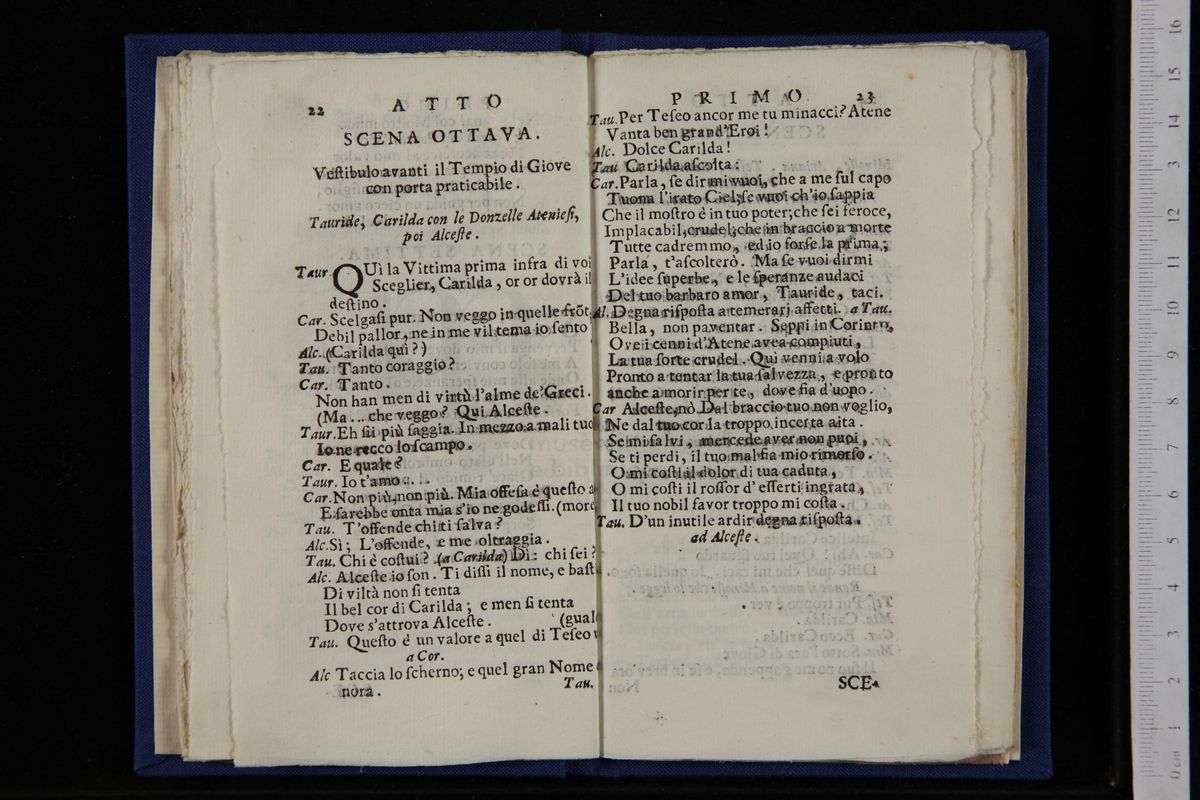 22 ATTO
SCENA OTTAVA.
Veſtibulo avanti il Tempio di Giove
con porta praticabile.
Tauride, Carilda con le Donzelle Atenieſi,
poi Alceſte.
Taur. QUì la Vittima prima infra di voi
Sceglier, Carilda, or or dovrà il
deſtino.
Car. Scelgaſi pur. Non veggo in quelle frõt:
Debil pallor, ne in me vil tema io ſento
Alc. (Carilda quì?)
Tau. Tanto coraggio?
Car. Tanto.
Non han men di virtù l'alme de' Greci.
(Ma... che veggo? Quì Alceſte.
Taur. Eh ſii più ſaggia. In mezzo a mali tuoi
Io ne recco lo ſcampo.
Car. E quale?
Taur. Io t'amo...
Car. Non più, non più. Mia offeſa è queſto a
E ſarebbe onta mia s'io ne godeſſi. (more
Tau. T'offende chi ti ſalva?
Alc. Sì; L'offende, e me oltraggia.
Tau. Chi è coſtui? (a Carilda) Dì: chi ſei?
Alc. Alceſte io ſon. Ti diſſi il nome, e baſta
Di viltà non ſi tenta
Il bel cor di Carilda; e men ſi tenta
Dove s'attrova Alceſte. (gual
Tau. Queſto è un valore a quel di Teſeo
a Cor.
Alc Taccia lo ſcherno; e quel gran Nome
nora. Tau.
PRIMO. 23
Tau. Per Teſeo ancor me tu minacci? Atene
Vanta ben grand'Eroi!
Alc. Dolce Carilda!
Tau Carilda aſcolta:
Car. Parla, ſe dir mi vuoi, che a me ſul capo
Tuona l'irato Ciel; ſe vuoi ch'io ſappia
Che il moſtro è in tuo poter; che ſei feroce,
Implacabil, crudel; che in braccio a morte
Tutte cadremmo, ed io forſe la prima;
Parla, t'aſcolterò. Ma ſe vuoi dirmi
L'idee ſuperbe, e le ſperanze audaci
Del tuo barbaro amor, Tauride, taci.
Al. Degna riſpoſta a temerarj affetti. a Tau.
Bella, non paventar. Seppi in Corinto,
Ove i cenni d'Atene avea compiuti,
La tua ſorte crudel. Qui venni a volo
Pronto a tentar la tua ſalvezza, e pronto
anche a morir per te, dove fia d'uopo.
Car Alceſte, nò. Dal braccio tuo non voglio,
Ne dal tuo cor la troppo incerta aita.
Se mi ſalvi, mercede aver non puoi,
Se ti perdi, il tuo mal fia mio rimorſo.
O mi coſti il dolor di tua caduta,
O mi coſti il roſſor d'eſſerti ingrata,
Il tuo nobil favor troppo mi coſta.
Tau. D'un inutile ardir degna riſpoſta.
ad Alceſte.
SCE-